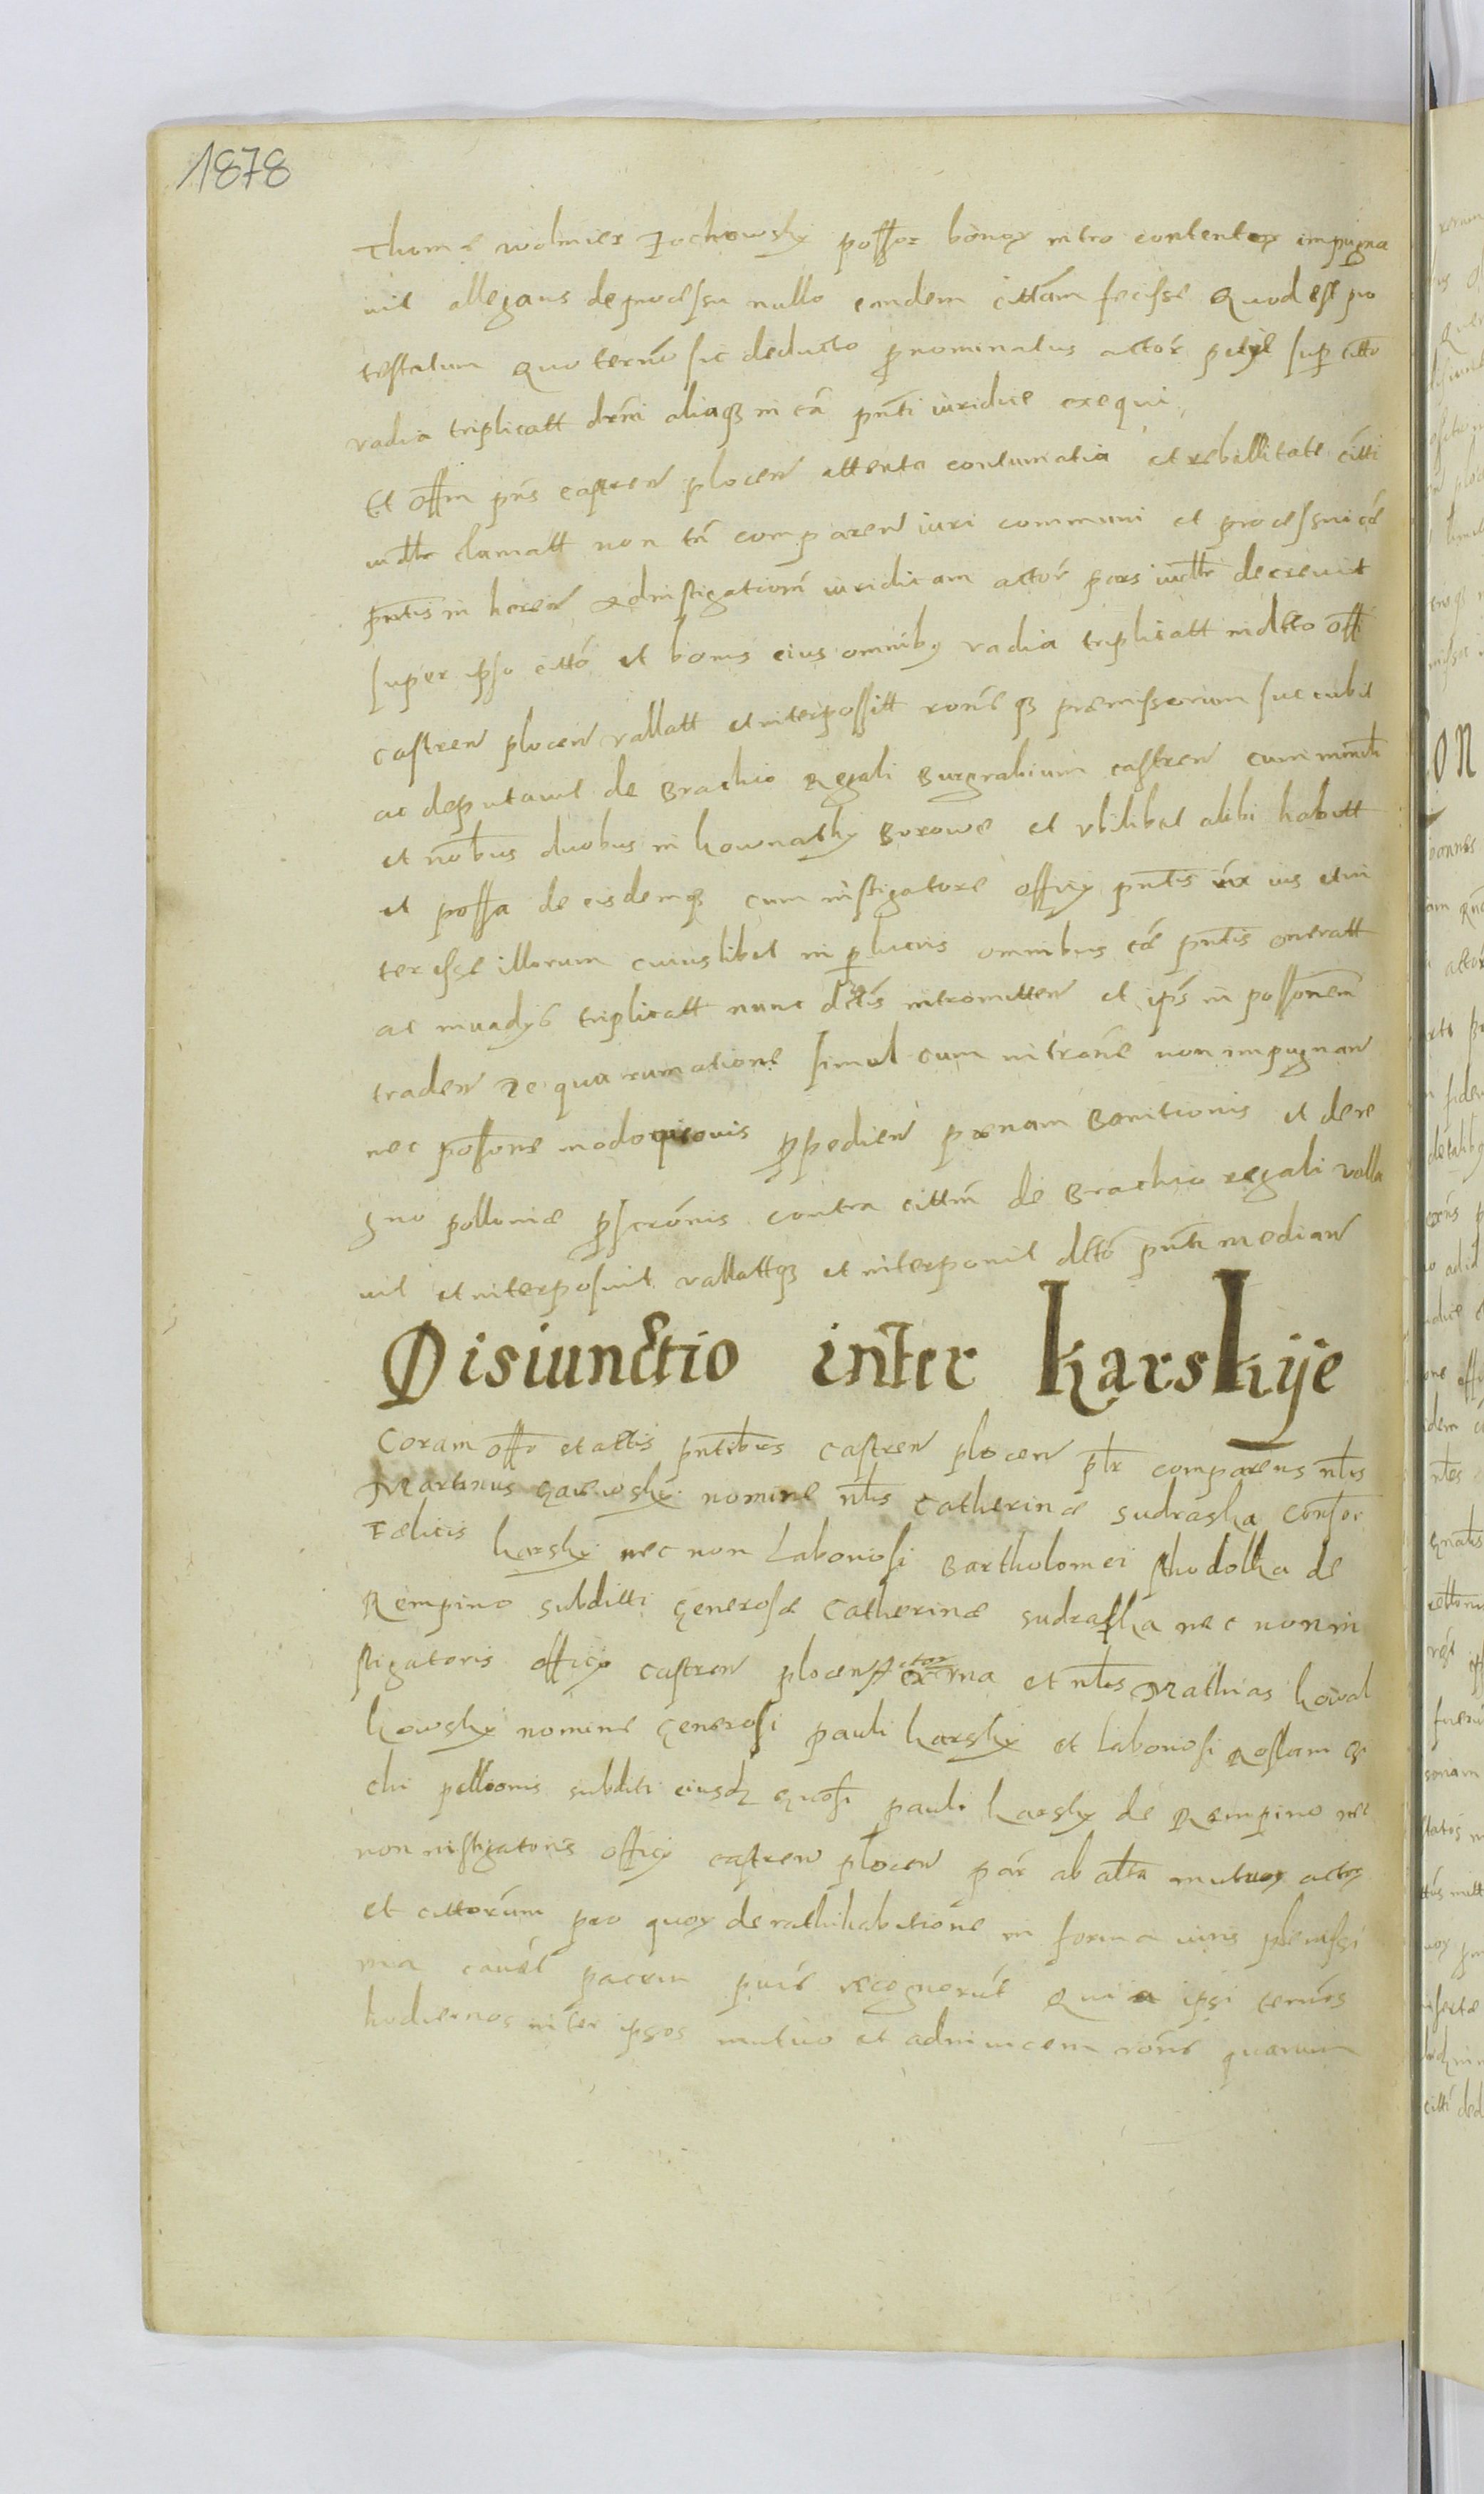 1878
Thomæ wolmier Zochowsky possor bonor intro contentor impugna
vit allegans de processu nullo eundem cittam fecisse Quod est pro
testatum Quo termo sic deducto prnominatus actor petyt sup citto
vadia triplicatt drni aliaqz in ca pnti iuridice exequi
Et offm pns castren plocen attenta contumatia et rebellitate citti
iudlr clamatt non tn comparen iuri communi et processui cæ
pntis in heren Adinstigationem iuridicam actor pars iudlr decrevit
super ipso citto et bonis eius omniby vadia triplicatt in dtto offi
castren plocen vallatt et interpositt rone qz præmissorum succubit
ac deputavit de Brachio Regali Burgrabium castren cum minrli
et nobus duobus in kownathy Borowe et vbilibet alibi habitt
et possa de eisdemqz cum instigatore officy pntis iux ius et in
teresse illorum cuiuslibet in p lucris omnibus cæ pntis oneratt
ac in vadys triplicatt nunc dctis intromitten et ips in possonem
traden Ze qua rumatione simul cum introne non impugnan
nec possone modo quovis prpedien pœnam Banitionis et de re
gno polloniæ prscronis contra cittm de Brachio regali valla
vit et interposuit vallattqz et interponit dcto pnti median
Disiunctio inter Karskije
Coram offo et actis pntibus castren plocen plr comparens nlis
Martinus Gaiewsky nomine nlis Catherinæ sudraska consor
Fælicis karsky nec non Laboriosi Bartholomei Rhodolka de
Rempino subditti generosæ Catherinæ sudraska nec non in
stigatoris officy castren plocen Actor ex vna et nlis Mathias kowal
kowsky nomine generosi pauli karsky et Laboriosi Roslam Gi
chi pellionis subditi eiusdz gnosi pauli karsky de Rempino nec
non instigatoris officy castren plocen par ab altra mutuor actor
et cittorum pro quor de rathihabitione in forma iuris plenissi
ma cavet pacem puræ recognerut Quia ipsi termos
hodiernos inter ipsos mutuo et adinuicem rone quarum